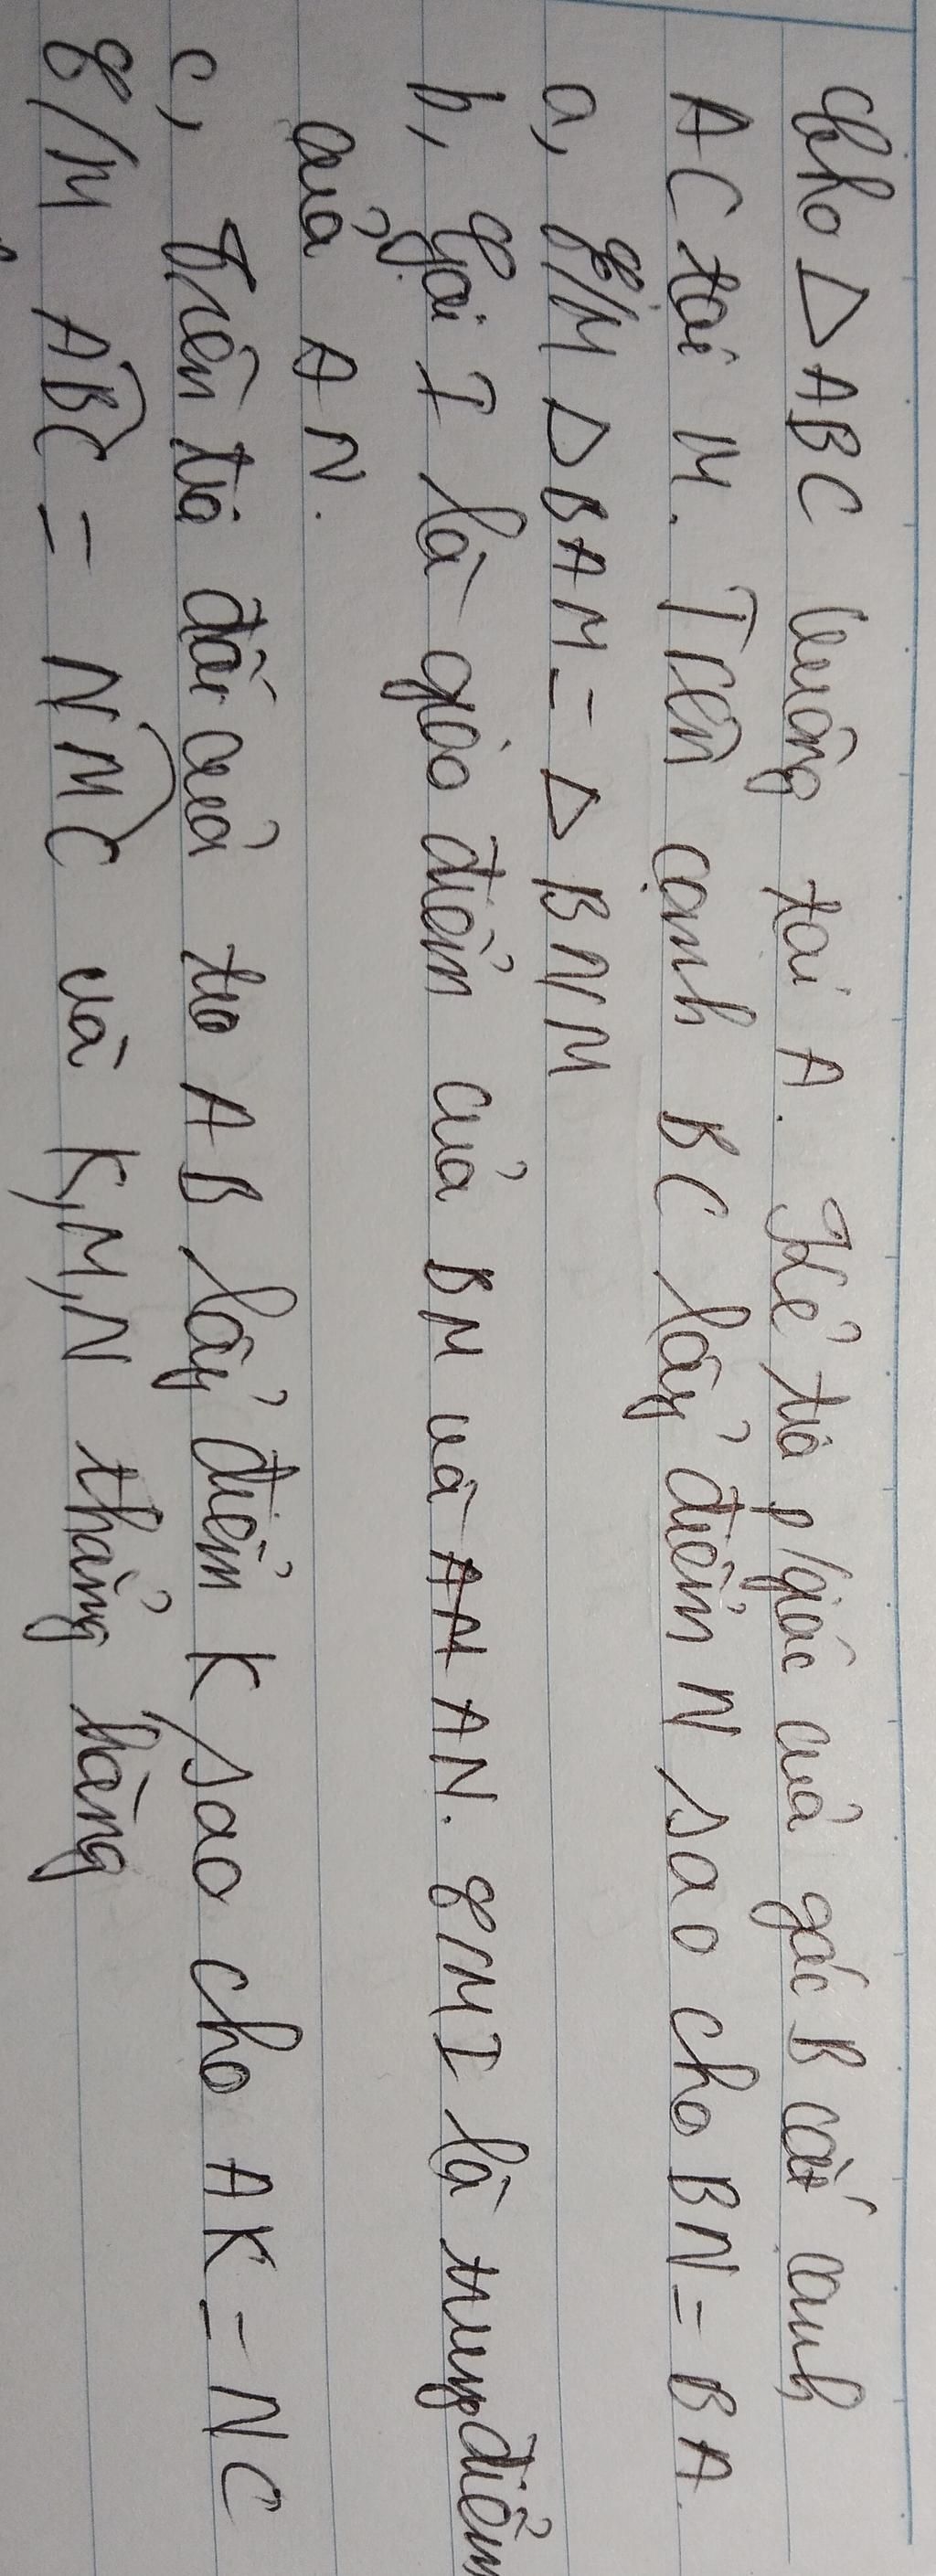 Cho △ABC vuông tại A. Kẻ tia p/giác của góc B cắt cạnh
AC tại M. Trên cạnh BC lấy điểm N sao cho BN = BA.
a, C/M △BAM = △BNM
b, Gọi I là giao điểm của BM và AN. C/M I là trung điểm
của AN.
c, Trên tia đối của tia AB lấy điểm K sao cho AK = NC
C/M ABC = NMC và K, M, N thẳng hàng